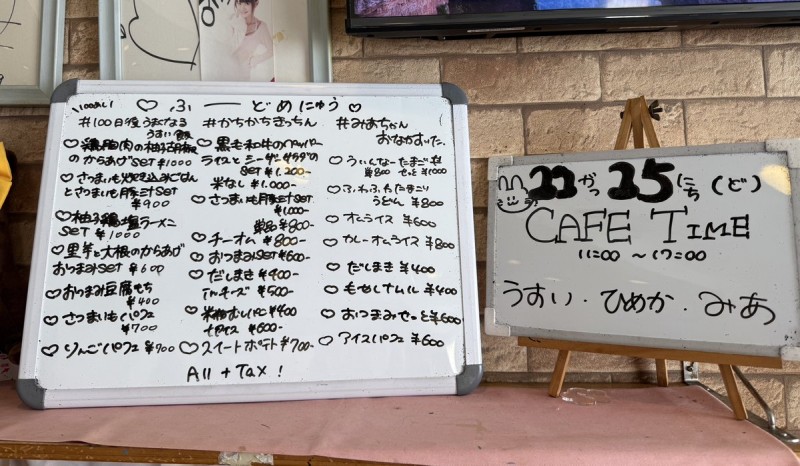 ♡ ふーどめにゅう ♡
#100日後うまくなる
うすい飯
♡鶏胸肉の柚子胡椒
のからあげSET ¥1000
♡さつまいも炊き込みごはん
とさつまいも豚汁SET
¥900
♡柚子鶏塩ラーメン
SET ¥1000
♡里芋と大根のからあげ
おつまみSET ¥600
♡おつまみ豆腐もち
¥400
♡さつまいもパフェ
¥700
♡りんごパフェ ¥700
#かちかちきっちん
♡黒毛和牛のペッパー
ライスとシーザーサラダの
SET ¥1.200-
米なし ¥1.000-
♡さつまいも豚汁SET
¥1.000-
単品 ¥800-
♡チーオム ¥800-
♡おつまみSET ¥600-
♡だしまき ¥400-
チーズ ¥500-
♡米粉むしパン ¥400
+アイス ¥600-
♡スイートポテト ¥700-
#みあちゃん
おなかすいた。
♡ういんなーたまご丼
¥800 せっと ¥1000
♡ふわふわたまとじ
うどん ¥800
♡オムライス ¥600
♡カレーオムライス ¥800
♡だしまき ¥400
♡もやしナムル ¥400
♡おつまみせっと ¥600
♡アイスパフェ ¥600
All + Tax !
11がつ25にち(ど)
CAFE TIME
11:00 ~ 17:00
うすい・ひめか・みあ